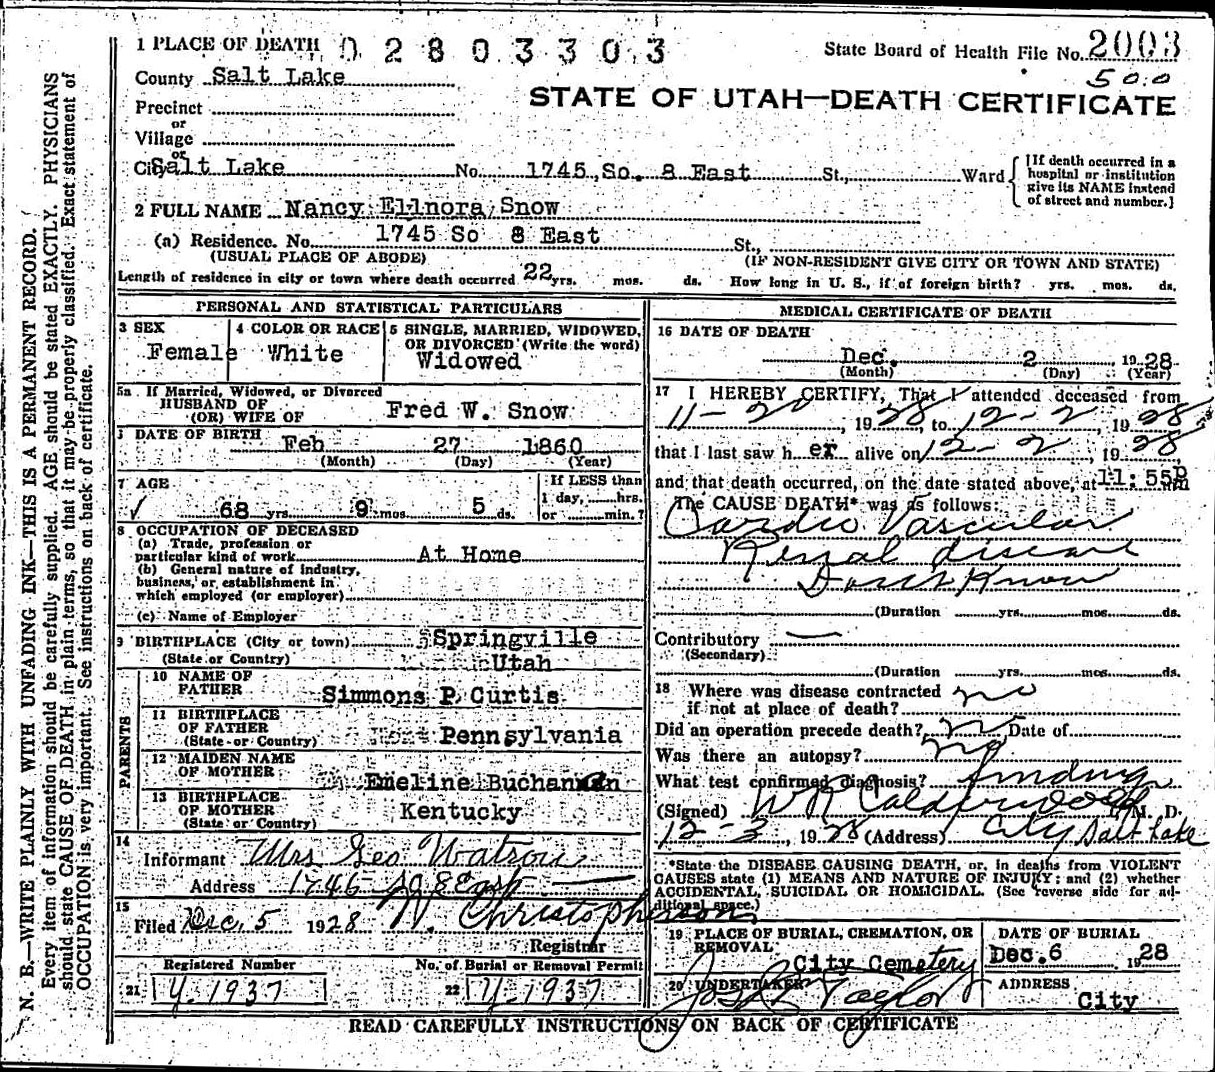 1 PLACE OF DEATH 02803303
State Board of Health File No. 2003
500
County Salt Lake
STATE OF UTAH—DEATH CERTIFICATE
Precinct
or
Village
or
City Salt Lake No. 1745 So. 8 East St., Ward {[If death occurred in a hospital or institution give its NAME instead of street and number.]
2 FULL NAME Nancy Ellnora Snow
(a) Residence. No. 1745 So 8 East St.,
(USUAL PLACE OF ABODE) (IF NON-RESIDENT GIVE CITY OR TOWN AND STATE)
Length of residence in city or town where death occurred 22 yrs. mos. ds. How long in U. S., if of foreign birth? yrs. mos. ds.
PERSONAL AND STATISTICAL PARTICULARS
3 SEX
Female
4 COLOR OR RACE
White
5 SINGLE, MARRIED, WIDOWED,
OR DIVORCED (Write the word)
Widowed
5a If Married, Widowed, or Divorced
HUSBAND OF
(OR) WIFE OF Fred W. Snow
DATE OF BIRTH Feb 27 1860
(Month) (Day) (Year)
7 AGE
68 yrs. 9 mos. 5 ds.
If LESS than
1 day, hrs.
or min.?
8 OCCUPATION OF DECEASED
(a) Trade, profession or
particular kind of work At Home
(b) General nature of industry,
business, or establishment in
which employed (or employer)
(c) Name of Employer
9 BIRTHPLACE (City or town) Springville
(State or Country) Utah
PARENTS
10 NAME OF
FATHER Simmons P. Curtis
11 BIRTHPLACE
OF FATHER
(State or Country) Pennsylvania
12 MAIDEN NAME
OF MOTHER Emeline Buchanan
13 BIRTHPLACE
OF MOTHER
(State or Country) Kentucky
14
Informant Mrs Geo Watson
Address 1746 So 8 East
15
Filed Dec. 5 1928 W. Christopherson
Registrar
Registered Number
21 Y-1937
No. of Burial or Removal Permit
22 Y-1937
MEDICAL CERTIFICATE OF DEATH
16 DATE OF DEATH
Dec. 2 1928
(Month) (Day) (Year)
17 I HEREBY CERTIFY, That I attended deceased from
11-20, 1928, to 12-2, 1928
that I last saw her alive on 12-2, 1928
and that death occurred, on the date stated above, at 11:55P m
The CAUSE DEATH* was as follows:
Cardio Vascular
Renal disease
Don't Know
(Duration yrs. mos. ds.
Contributory —
(Secondary)
(Duration yrs. mos. ds.
18 Where was disease contracted
if not at place of death? no
Did an operation precede death? no Date of
Was there an autopsy? no
What test confirmed diagnosis? findings
(Signed) W R Calderwood M. D.
12-3, 1928 (Address) City Salt Lake
*State the DISEASE CAUSING DEATH, or, in deaths from VIOLENT
CAUSES state (1) MEANS AND NATURE OF INJURY; and (2) whether
ACCIDENTAL, SUICIDAL OR HOMICIDAL. (See reverse side for ad-
ditional space.)
19 PLACE OF BURIAL, CREMATION, OR
REMOVAL
City Cemetery
DATE OF BURIAL
Dec. 6 1928
20 UNDERTAKER
Taylor
ADDRESS
City
READ CAREFULLY INSTRUCTIONS ON BACK OF CERTIFICATE
N. B.—WRITE PLAINLY WITH UNFADING INK—THIS IS A PERMANENT RECORD.
Every item of information should be carefully supplied. AGE should be stated EXACTLY. PHYSICIANS
should state CAUSE OF DEATH in plain terms, so that it may be properly classified. Exact statement of
OCCUPATION is very important. See instructions on back of certificate.